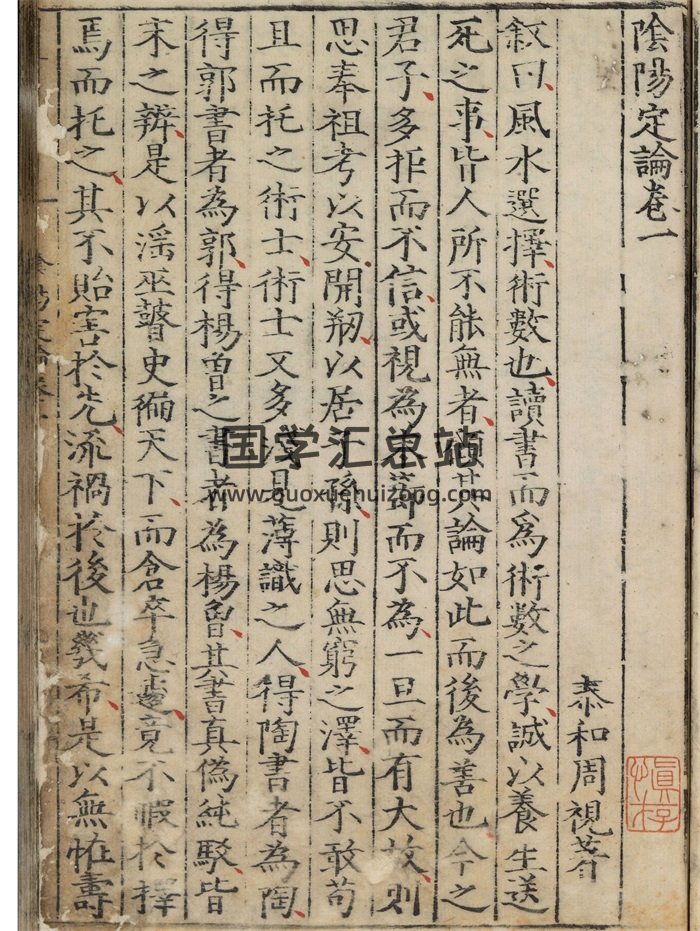 陰陽定論卷一
泰和周視著
敘曰風水選擇術數也讀書而爲術數之學誠以養生送
死之事皆人所不能無者顧其論如此而後為善也今之
君子多拒而不信或視為末節而不為一旦而有大故則
思奉祖考以安開剏以居子孫則思無窮之澤皆不敢苟
且而托之術士術士又多淺見薄識之人得陶書者為陶
得郭書者為郭得楊曾之書者為楊曾其書真偽純駁皆
未之辨是以淫巫瞽史徧天下而倉卒急遽竟不暇於擇
焉而托之其不貽害於先流禍於後也幾希是以無惟壽
陰陽定論卷一
国学汇总站
www.guoxuehuizong.com